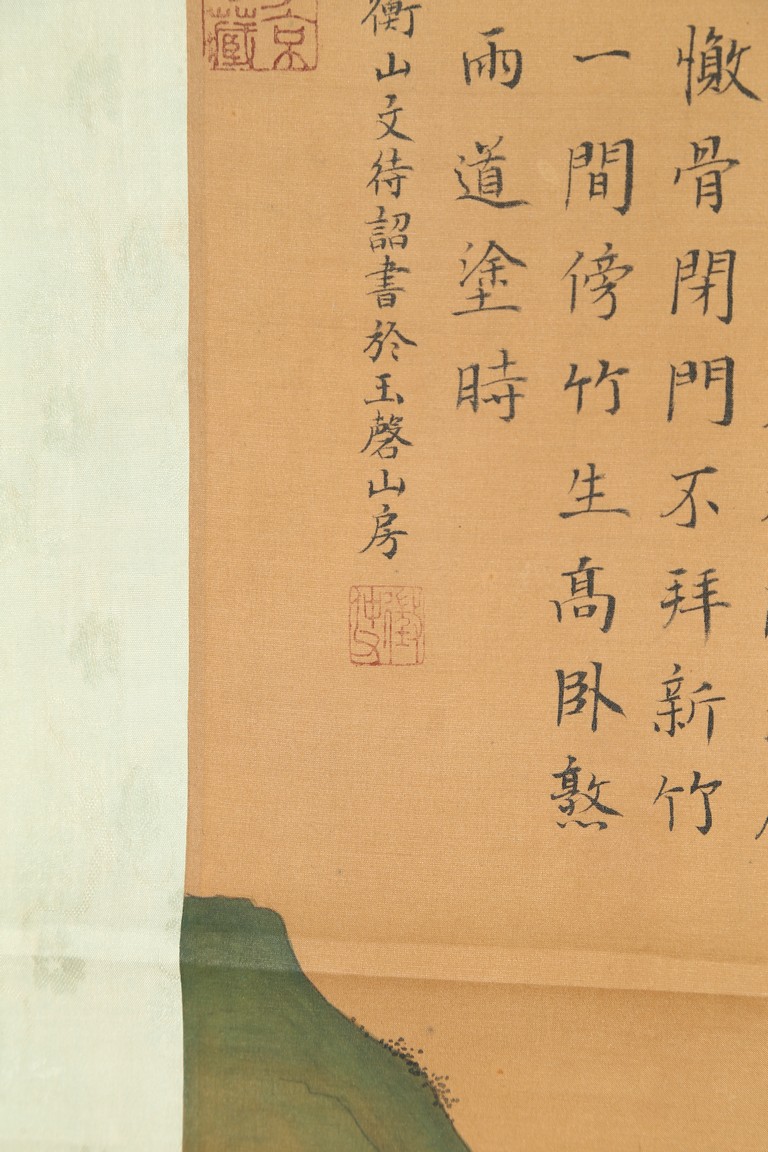 骨閉門不拜新竹
一間傍竹生高臥
雨道塗時
衡山文待詔書於玉磬山房
京
藏